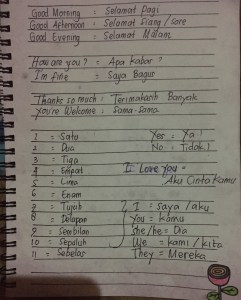 Good Morning : Selamat Pagi
Good Afternoon : Selamat Siang/Sore
Good Evening : Selamat Malam
How are you? : Apa Kabar?
I'm fine : Saya Bagus
Thanks so much : Terimakasih Banyak
You're Welcome : Sama-Sama
1 = Satu Yes = Ya!
2 = Dua No = Tidak!
3 = Tiga
4 = Empat I Love You =
5 = Lima Aku Cinta Kamu
6 = Enam
7 = Tujuh I = saya/aku
8 = Delapan You = Kamu
9 = Sembilan She/he = Dia
10 = Sepuluh We = kami/kita
11 = Sebelas They = Mereka